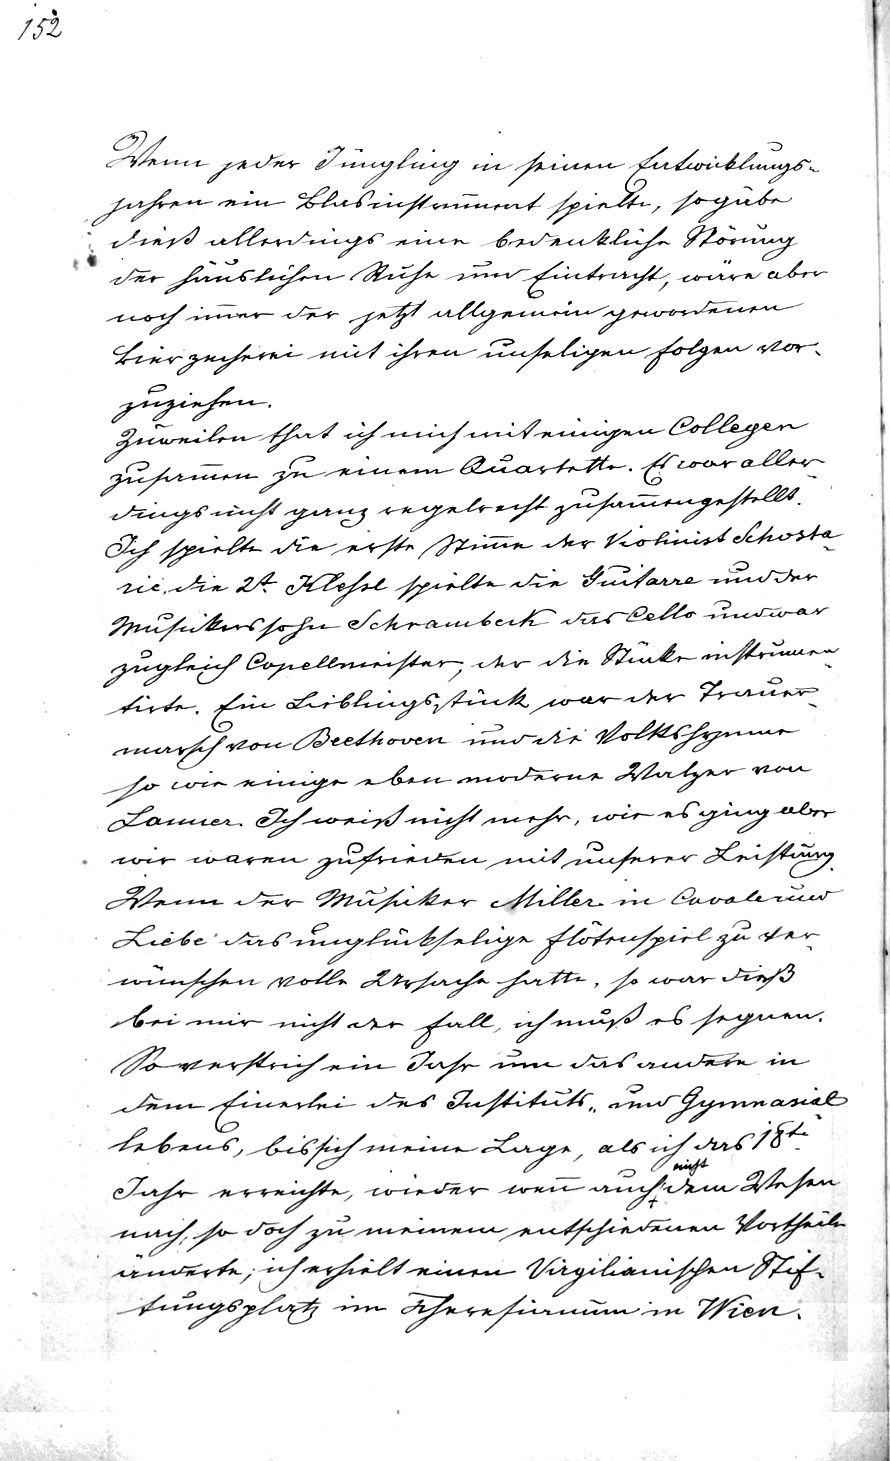 152
Wenn jeder Jüngling in seinen Entwicklungs-
jahren ein Blasinstrument spielte, so gäbe
dieß allerdings eine bedenkliche Störung
der häuslichen Ruhe und Eintracht, wäre aber
noch im̅er der jetzt allgemein gewordenen
Bierzecherei mit ihren unseligen Folgen vor-
zuziehen.
Zuweilen that ich mich mit einigen Collegen
zusam̅en zu einem Quartette. Es war aller-
dings nicht ganz regelrecht zusam̅engestellt.
Ich spielte die erste Stim̅e der Violinist Schosta-
ric. die 2t. Klehsl spielte die Guitarre und der
Musikerssohn Schrambeck das Cello und war
zugleich Capellmeister, der die Stücke instrumen-
tirte. Ein Lieblingsstück war der Trauer-
marsch von Beethoven und die Volkshymne
so wie einige eben moderne Walzer von
Lanner. Ich weiß nicht mehr, wie es ging aber
wir waren zufrieden mit unserer Leistung.
Wenn der Musiker Miller in Cavale und
Liebe das unglückselige Flötenspiel zu ver-
wünschen volle Ursache hatte, so war dieß
bei mir nicht der Fall, ich muß es segnen.
So verstrich ein Jahr um das andere in
dem Einerlei des Instituts- und Gymnasial
lebens, bis sich meine Lage, als ich das 18te
Jahr erreichte, wieder wen̅ auch nicht dem Wesen
nach, so doch zu meinem entschiedenen Vortheile
änderte; ich erhielt einen Virgilianischen Stif-
tungsplatz im Theresianum in Wien.